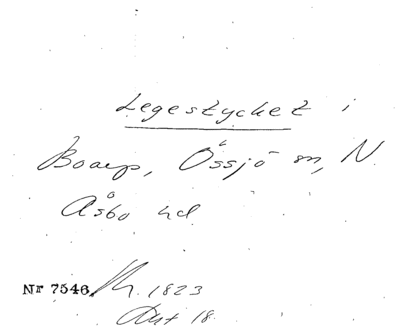 Legestycket i
Boarp, Össjö sn, N.
Åsbo hd
Nr 7546, 1823
Akt 18.